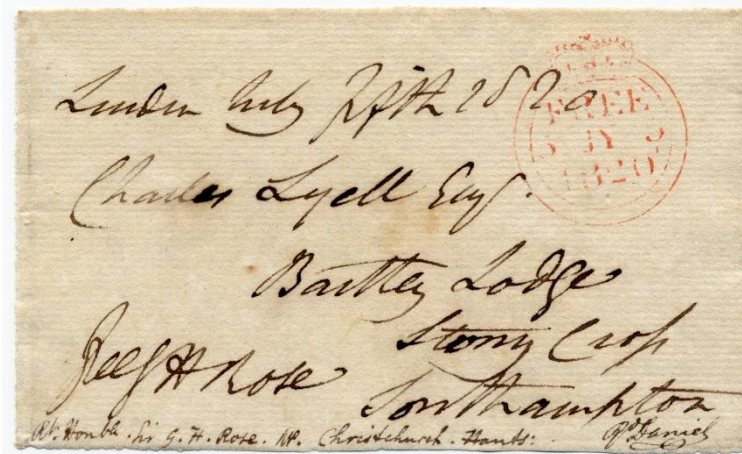 London July Fifth 1820
FREE
5 JY 5
1820
Charles Lyell Esqr.
Bartley Lodge
Stony Cross
Southampton
G H Rose
Rt. Honble. Sir G. H. Rose. MP. Christchurch. Hants: